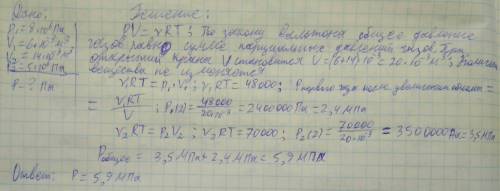 Дано:
Решение:
P₁=8*10⁶Па
V₁=6*10⁻³м³
V₂=14*10⁻³м³
P₂=5*10⁶Па
P=? Па
PV=νRT; По закону Дальтона общее давление
газов равно сумме парциальных давлений газов. При
открытии крана V становится V=(6+14)*10⁻³=20*10⁻³м³; Количество
вещества не изменяется
ν₁RT=P₁*V₁; ν₁RT=48000; P первого газа после увеличения объема=
= ν₁RT/V; P₁(2)=48000/20*10⁻³=2400000Па=2,4МПа
ν₂RT=P₂V₂; ν₂RT=70000; P₂(2)=70000/20*10⁻³=3500000Па=3,5МПа
Pобщее= 3,5МПа+2,4МПа=5,9МПа
Ответ: P=5,9МПа